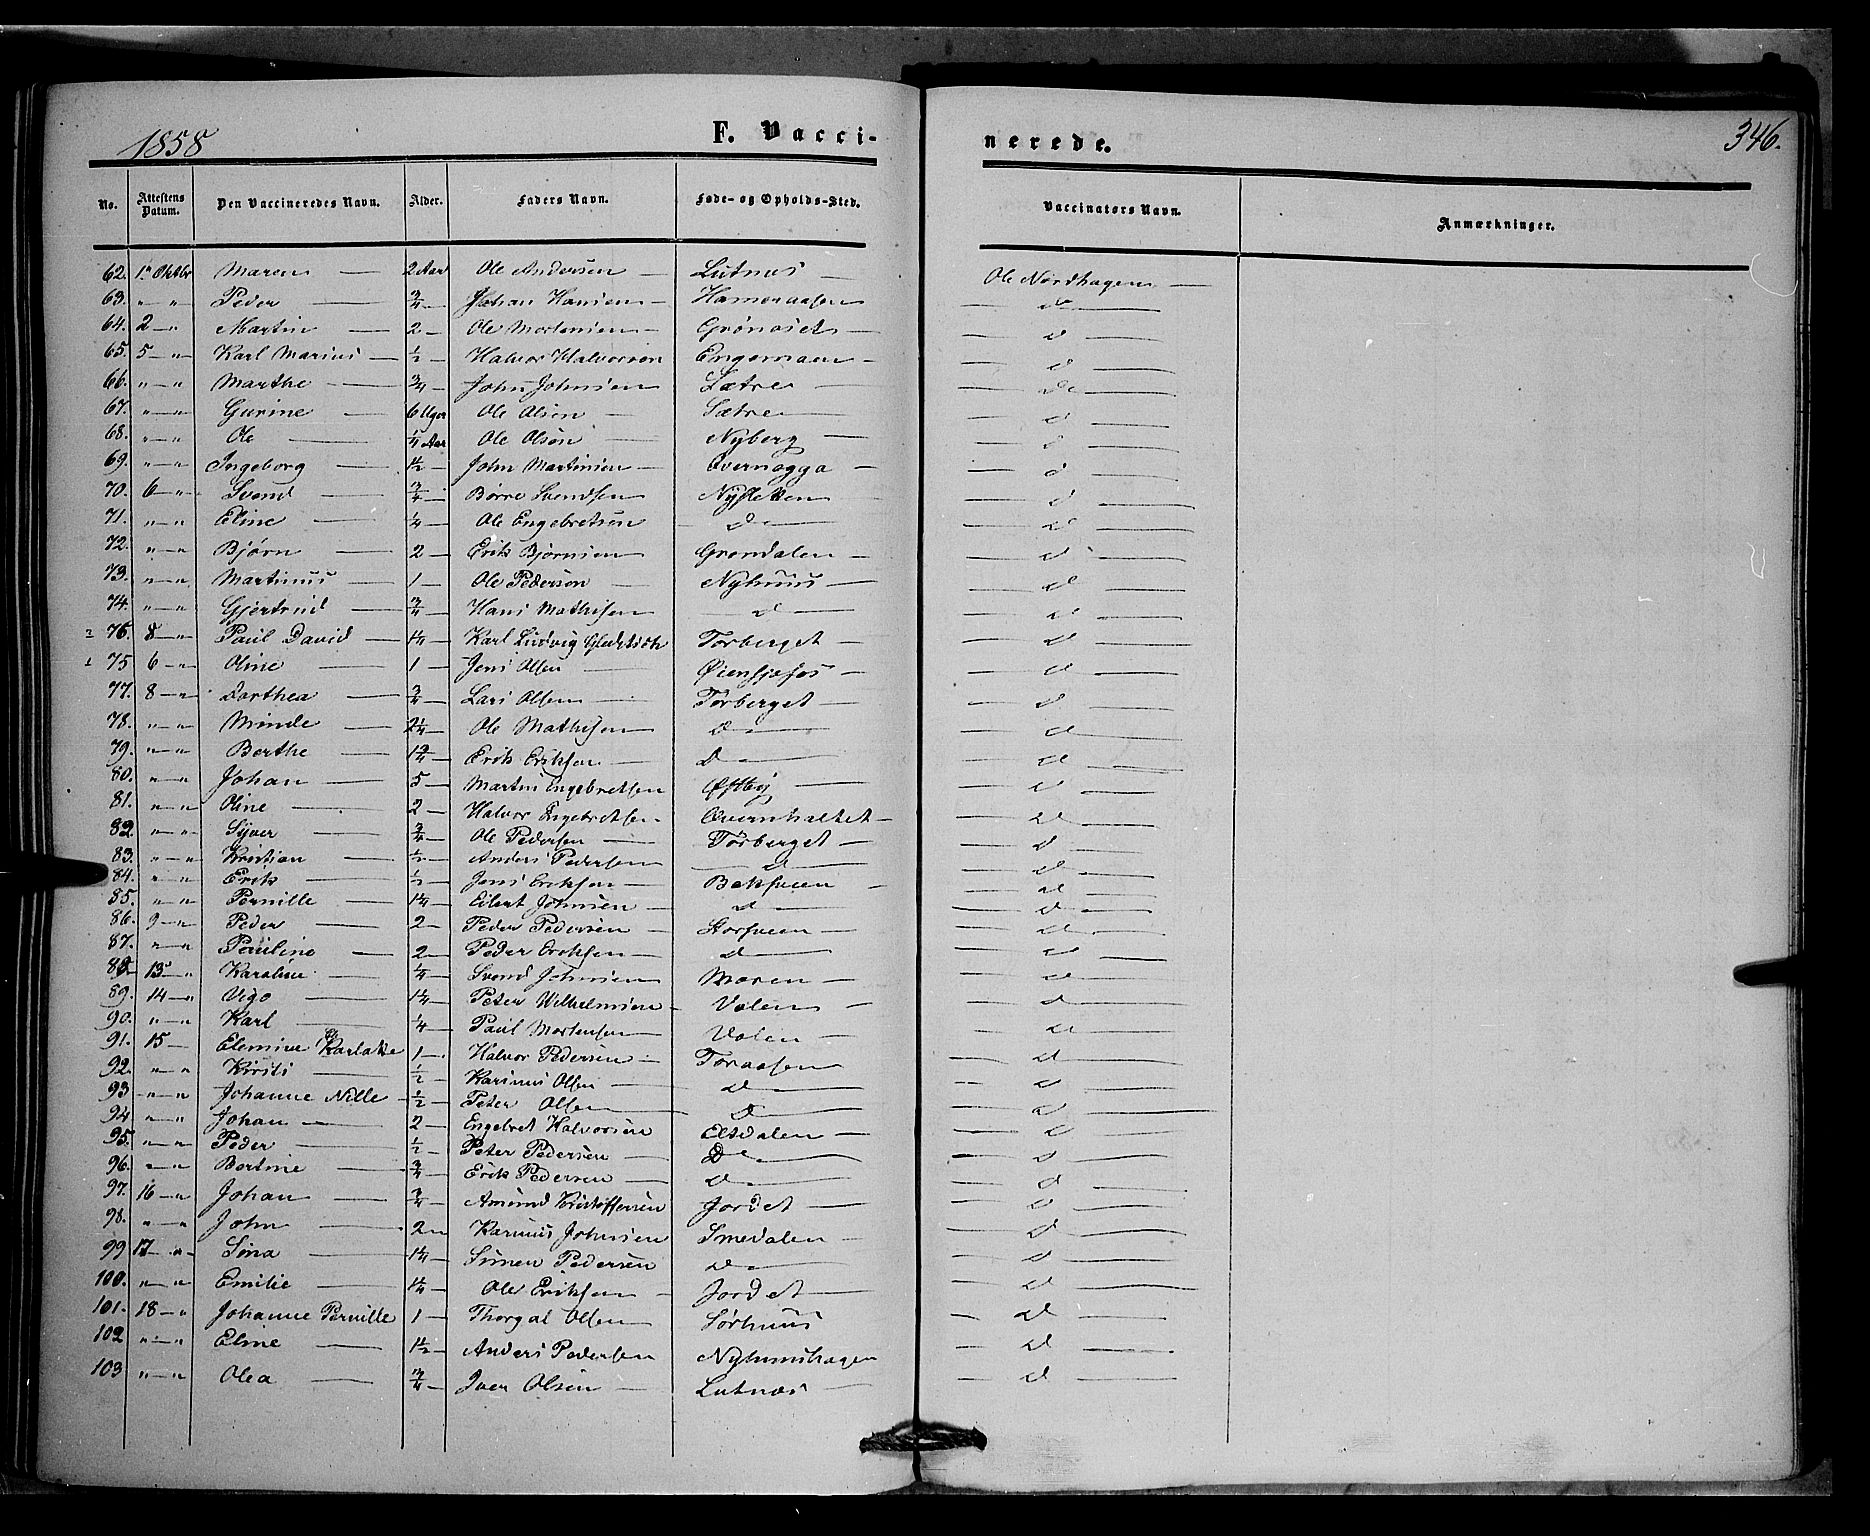 1858 F. Vacci- nerede. 346.
No. Attestens Datum. Den Vaccineredes Navn. Alder. Faders Navn. Føde- og Opholds-Sted. Vaccinators Navn. Anmærkninger.
62. 1. Oktbr Maren — 2 Aar Ole Andersen — Lutnæs — Ole Nordhagen —
63. " " Peder — 3/4 — Johan Hansen — Hameraasen — d —
64. 2 — " Martin — 2 — Ole Mortensen — Grønoset — d —
65. 5 — " Karl Marius — 1/2 — Halvor Halvorsen Engemoen — d —
66. " — " Marthe — 3/4 — John Johnsen Sætre — d —
67. " — " Gurine — 6 Uger Ole Olsen — Sætre — d —
68. " — " Ole — 1/4 Aar Ole Olsen — Nyberg — d —
69. " — " Ingeborg — 1 1/2 — John Martinsen — Overnagga — d —
70. 6 — " Svend — 3/4 — Børre Svendsen Nysletten d —
71. " — " Eline — 1/4 — Ole Engebretsen — D — d —
72. " — " Bjørn — 2 — Erik Bjørnsen Grøndalen — d —
73. " — " Martinus — 1 — Ole Pedersen — Nyhuus — d —
74. " — " Gjertrud — 3/4 — Hans Mathisen — d — d —
2 76. 8 — " Paul David — 1 1/4 — Karl Ludvig Torberget — d —
1 75 6 — " Oline — 1 — Jens Olsen — Øiensjøfos — d —
77. 8 — " Dorthea — 3/4 — Lars Olsen — Torberget — d —
78. " — " Minde — 2 1/4 — Ole Mathisen D — d —
79. " — " Berthe — 1 3/4 — Erik Eriksen — D — d —
80. " — " Johan — 5 — Martin Engebretsen Østby — d —
81. " — " Oline — 2 — Halvor Engebretsen — d —
82. " — " Syver — 3/4 — Ole Pedersen — Torberget — d —
83. " — " Kristian — 1/2 — Anders Pedersen — d — d —
84. " — " Erik — 1/2 — Jens Eriksen — Bekveen — d —
85. " — " Pernille — 1 1/4 — Eilert Johnsen — d — d —
86. 9 — " Peder — 2 — Peder Pedersen — Storveen — d —
87. " — " Pauline — 2 — Peder Eriksen — d — d —
88. 13 — " Karoline — 1/4 — Svend Johnsen — Moren — d —
89. 14 — " Vigo — 1 1/4 — Peter Wilhelmsen — Volen — d —
90. " — " Karl — 1/4 — Paul Mortensen — Volen — d —
91. 15 — Elemine Karlotte 1 — Halvor Pedersen — Toraasen — d —
92. " — " Kirsti — 1/2 — Karinus Olsen — D — d —
93 " — " Johanne Nille — 1/2 — Peter Olsen — D — d —
94 " — " Johan — 2 — Engebret Halvorsen Eltdalen — d —
95. " — " Peder — 1/2 — Peter Pedersen — D — d —
96. " — " Bertine — 3/4 — Erik Pedersen — d — d —
97. 16 — " Johan — 3/4 — Amund Kristoffersen Jordet — d —
98. " — " John — 2 — Karinus Johnsen Smedalen — d —
99 17 — " Sina — 1 1/4 — Simen Pedersen D — d —
100. " — " Emilie — 1 1/4 — Ole Eriksen — Jordet — d —
101. 18 — " Johanne Pernille 1 — Thorgal Olsen — Sørhuus — d —
102 " — " Eline — 1 1/2 — Anders Pedersen Nyhuushagen — d —
103 " — " Olea — 3/4 — Iver Olsen — Lutnæs — d —